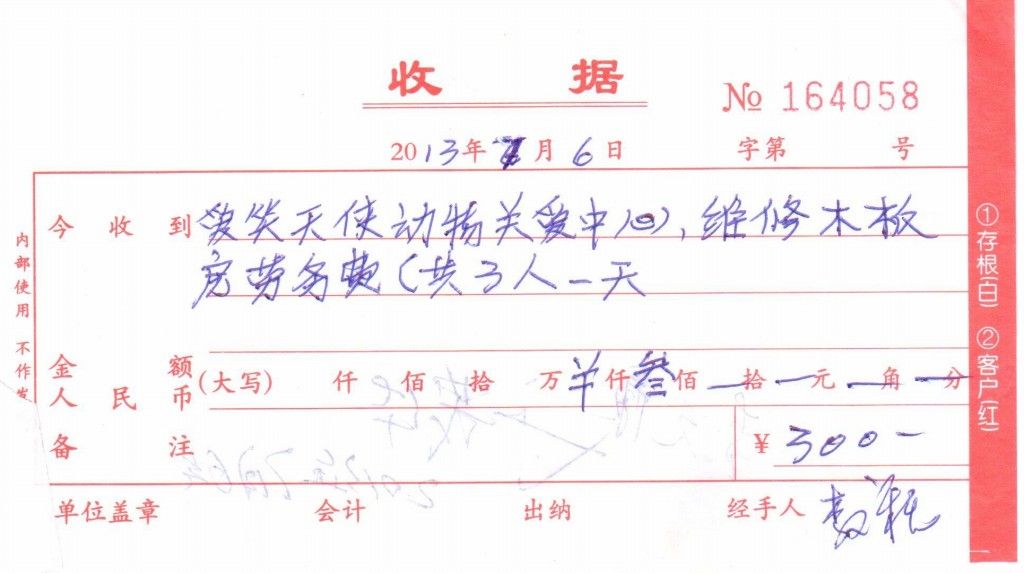 收 据
№ 164058
2013年7月6日 字第 号
今收到 爱笑天使动物关爱中心，维修木板
房劳务费（共3人一天
金额
人民币(大写) 仟 佰 拾 万 ¥ 仟 叁 佰 — 拾 — 元 — 角 — 分
备注 ¥ 300—
单位盖章 会计 出纳 经手人
内部使用 不作发
①存根(白) ②客户(红)